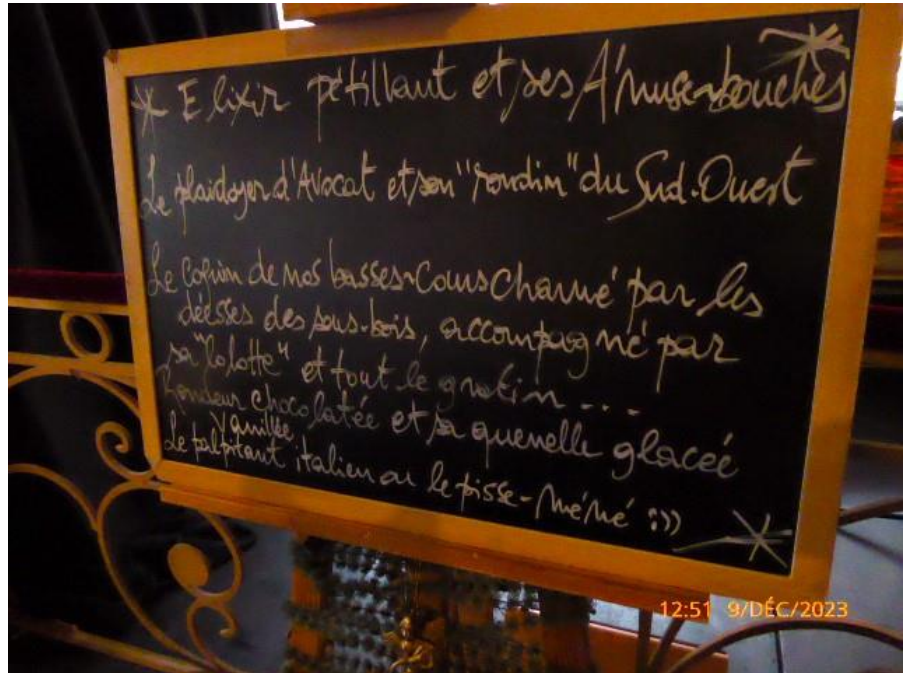 * Elixir pétillant et ses Amuse-bouches *
Le plaidoyer d'Avocat et son "rondin" du Sud-Ouest
Le Copain de nos basses-Cours Charmé par les
déesses des sous-bois, accompagné par
sa "lolotte" et tout le gratin ...
Rondeur chocolatée et sa quenelle glacée
Vanillée
Le palpitant italien ou le pisse-mémé :))
12:51 9/DÉC/2023